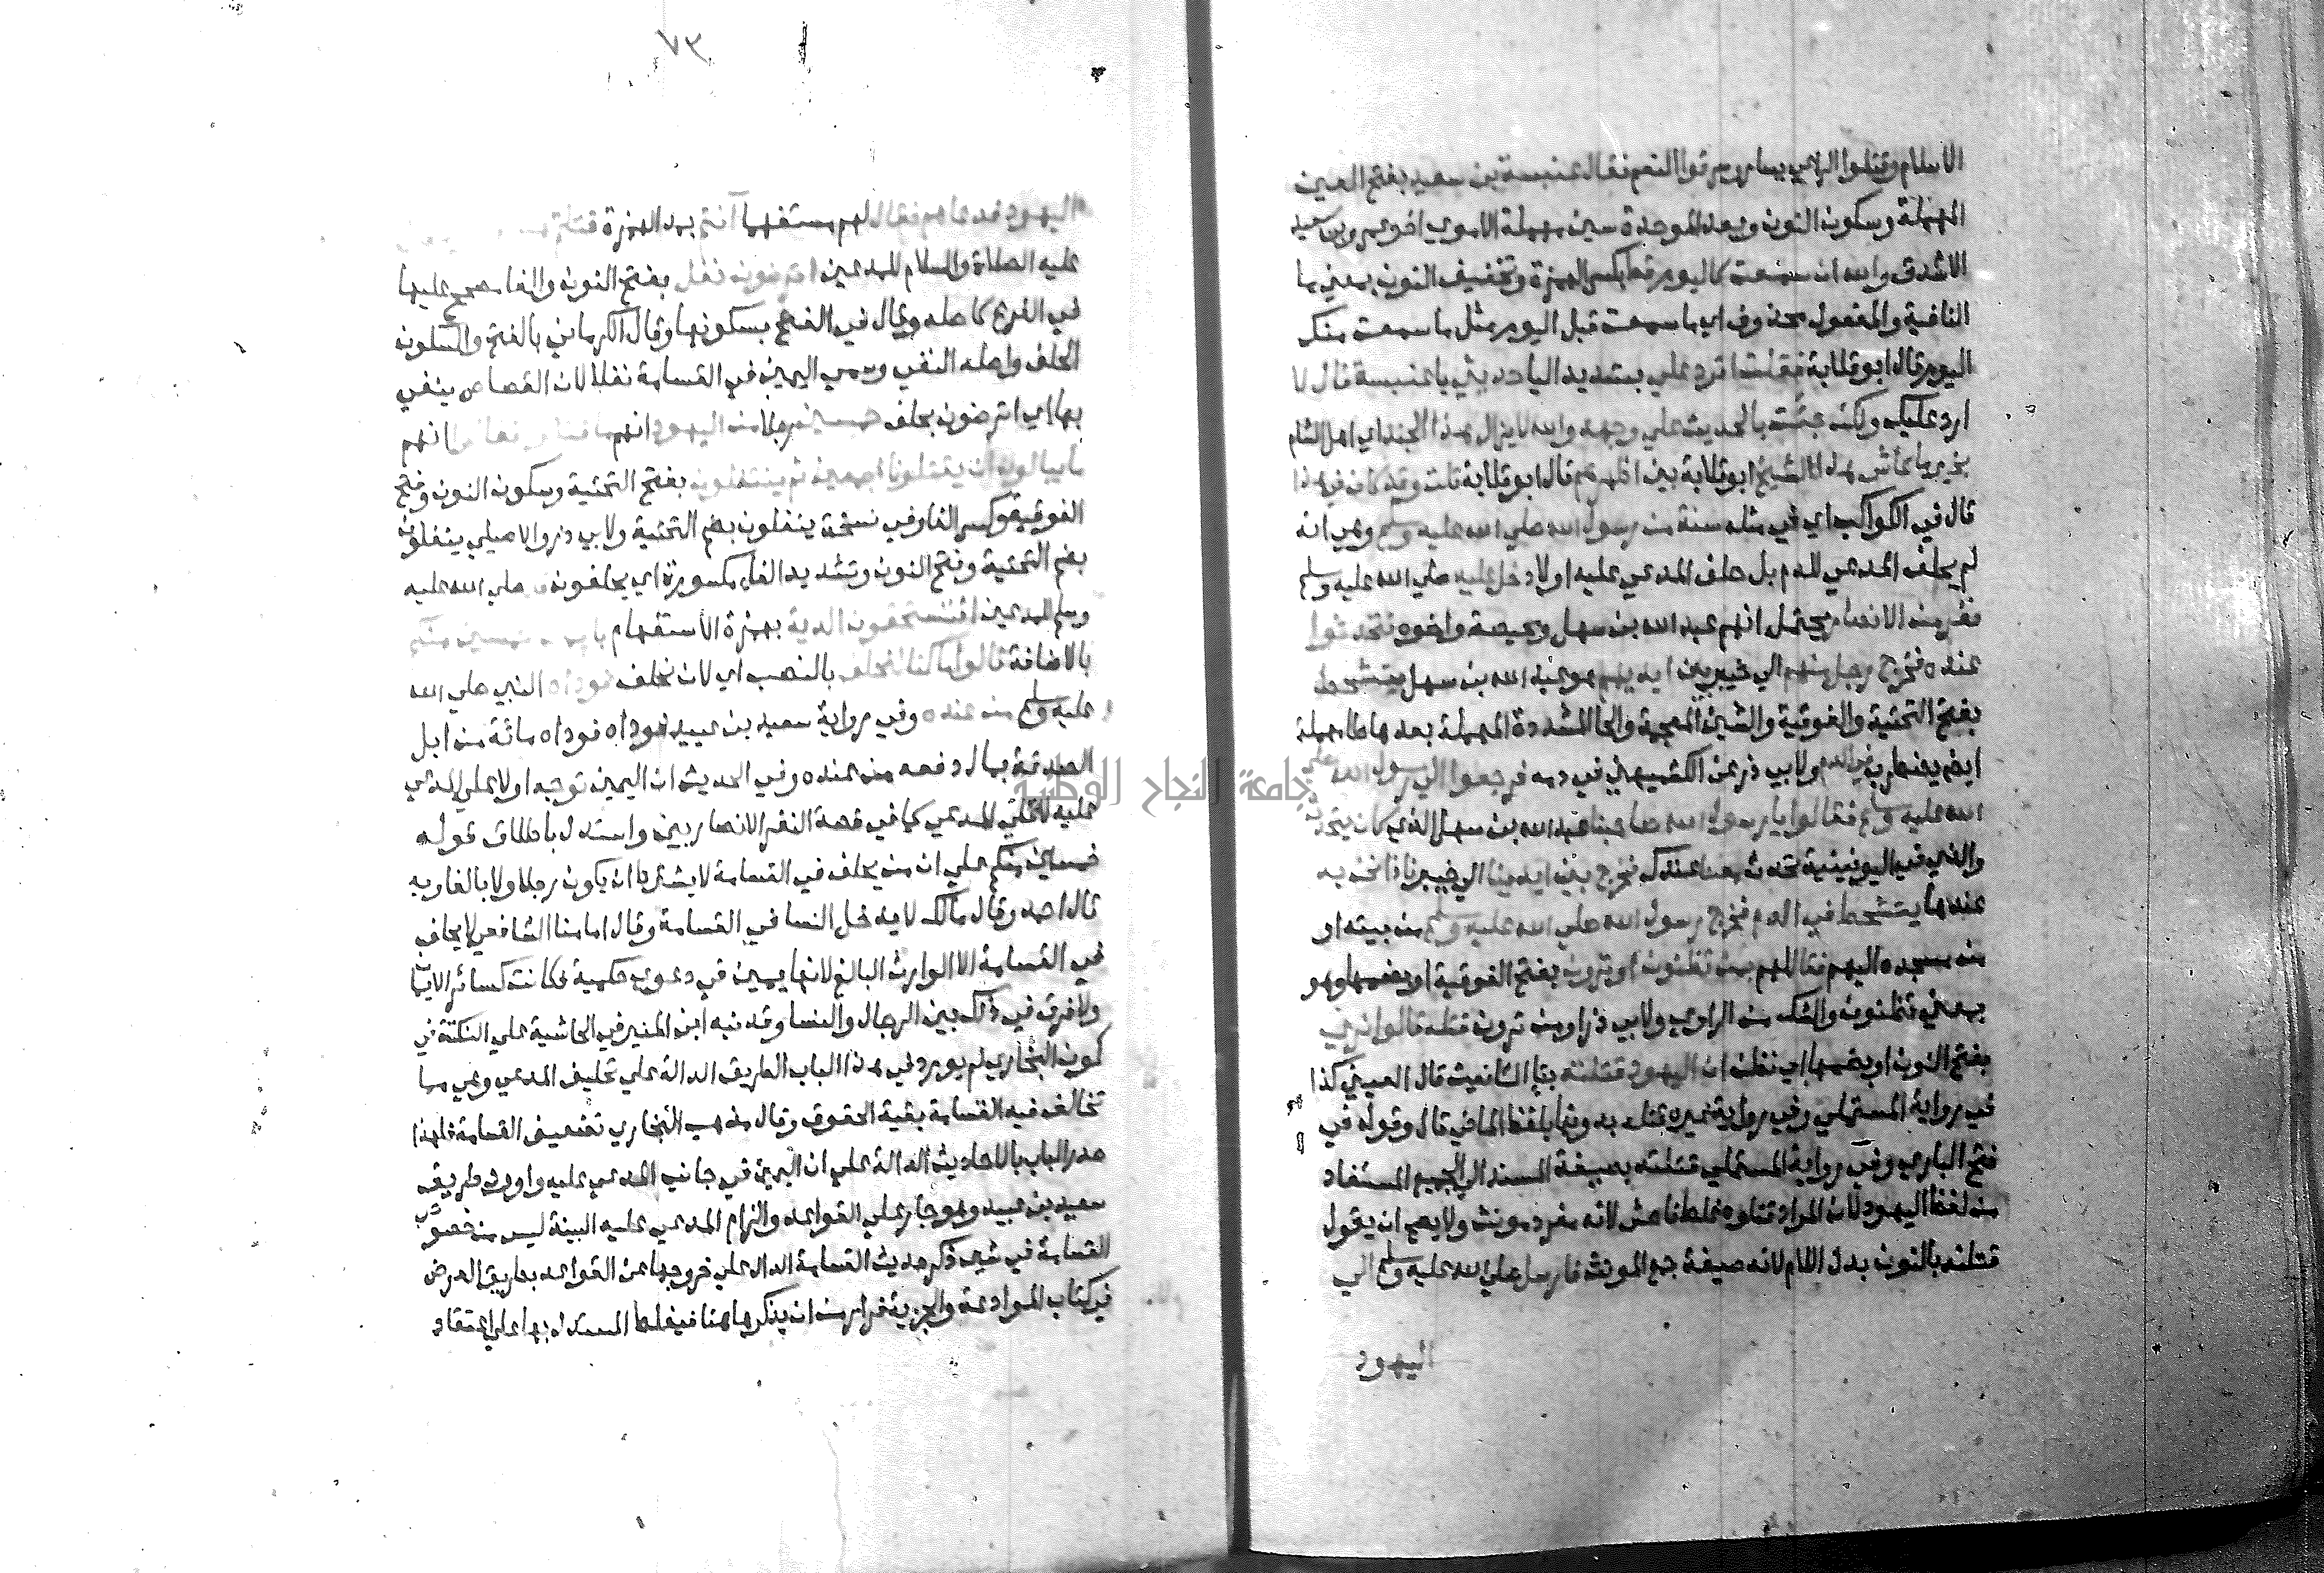 الاسلام وقتلوا الراعي يسار وسرقوا النعم فقال عنبسة بن سعيد بفتح العين
المهملة وسكون النون وبعد الموحدة سين مهملة الاموي اخو عمرو بن سعيد
الاشدق والله ان سمعت كاليوم قط بكسر الهمزة وتخفيف النون بمعني ما
النافية والمفعول محذوف اي ما سمعت قبل اليوم مثل ما سمعت منك
اليوم قال ابو قلابة فقلت اترد علي بتشديد اليا حديثي يا عنبسة قال لا
ارد عليك ولكن جئت بالحديث علي وجهه والله لا يزال هذا الجند اي اهل الشام
بخير ما عاش هذا الشيخ ابو قلابة بين اظهرهم قال ابو قلابة قلت وقد كان في هذا
قال في الكواكب اي في مثله سنة من رسول الله صلي الله عليه وسلم وهي انه
لم يحلف المدعي للدم بل حلف المدعي عليه اولا دخل عليه صلي الله عليه وسلم
نفر من الانصار يحتمل انهم عبد الله بن سهل ومحيصة واخوه فتحدثوا
عنده فخرج رجل منهم الي خيبر بين ايديهم هو عبد الله بن سهل يتشحط
بفتح التحتية والفوقية والشين المعجمة والحا المشددة المهملة بعدها طا مهملة
ايضا يضطرب في الدم ولابي ذر عن الكشميهني في دمه فرجعوا الي رسول الله صلي
الله عليه وسلم فقالوا يا رسول الله صاحبنا عبد الله بن سهل الذي كان يتحدث
والذي في اليونينية تحدث معنا عندك فخرج بين ايدينا الي خيبر فاذا نحن به
عندها يتشحط في الدم فخرج رسول الله صلي الله عليه وسلم من بيته او
من مسجده اليهم فقال لهم بمن تظنون او ترون بفتح الفوقية او بضمها وهو
بمعني تظنون والشك من الراوي ولابي ذر او من ترون قتله قالوا نري
بفتح النون او بضمها اي نظن ان اليهود قتلته بتا التانيث قال العيني كذا
في رواية المستملي وفي رواية غيره قتله بدونها بلفظ الماضي قال وقوله في
فتح الباري وفي رواية المستملي قتلته بصيغة المسند الي الجمع المستفاد
من لفظ اليهود لان المراد قتلوه غلط فاحش لانه مفرد مونث ولا يصح ان يقول
قتلنه بالنون بدل اللام لانه صيغة جمع المونث فارسل صلي الله عليه وسلم الي
اليهود
٧٣
اليهود فدعاهم فقال لهم مستفهما آنتم بمد الهمزة قتلتم
عليه الصلاة والسلام للمدعين اترضون نفل بفتح النون والفا مصحح عليها
في الفرع كاصله وقال في الفتح بسكونها وقال الكرماني بالفتح والسكون
الحلف واصله النفي وسمي اليمين في القسامة نفلا لان القصاص ينفي
بها اي اترضون بحلف خمسين رجلا من اليهود انهم ما قتلوه فقالوا انهم
ما يبالون ان يقتلونا اجمعين ثم ينتفلون بفتح التحتية وسكون النون وفتح
الفوقية وكسر الفا وفي نسخة ينفلون بضم التحتية ولابي ذر والاصيلي ينفلون
بضم التحتية وفتح النون وتشديد الفا مكسورة اي يحلفون صلي الله عليه
وسلم للمدعين افتستحقون الدية بهمزة الاستفهام بايمان خمسين منكم
بالاضافة قالوا ما كنا لنحلف بالنصب اي لان نحلف فوداه النبي صلي الله
عليه وسلم من عنده وفي رواية سعيد بن عبيد فوداه مائة من ابل
الصدقة بمال دفعه من عنده وفي الحديث ان اليمين توجه اولا علي المدعي
عليه لا علي المدعي كما في قصة النفر الانصاريين واستدل باطلاق قوله
خمسين منكم علي ان من يحلف في القسامة لا يشترط ان يكون رجلا ولا بالغا وبه
قال احمد وقال مالك لا مدخل للنسا في القسامة وقال امامنا الشافعي لا يحلف
في القسامة الا الوارث البالغ لانها يمين في دعوي حكمية فكانت كسائر الايمان
ولا فرق في ذلك بين الرجال والنسا وقد نبه ابن المنير في الحاشية علي النكتة في
كون البخاري لم يورد في هذا الباب الطريق الدالة علي تحليف المدعي وهي مما
تخالف فيه القسامة بقية الحقوق وقال مذهب البخاري تضعيف القسامة فلهذا
صدر الباب بالاحاديث الدالة علي ان اليمين في جانب المدعي عليه واورد طريق
سعيد بن عبيد وهو جار علي القواعد والزام المدعي عليه البينة ليس من خصوص
القسامة في شي ثم ذكر حديث القسامة الدال علي خروجها عن القواعد بطريق العرض
في كتاب الموادعة والجزية فرارا من ان يذكرها هنا فيغلط المستدل بها علي اعتقاد
جامعة النجاح الوطنية